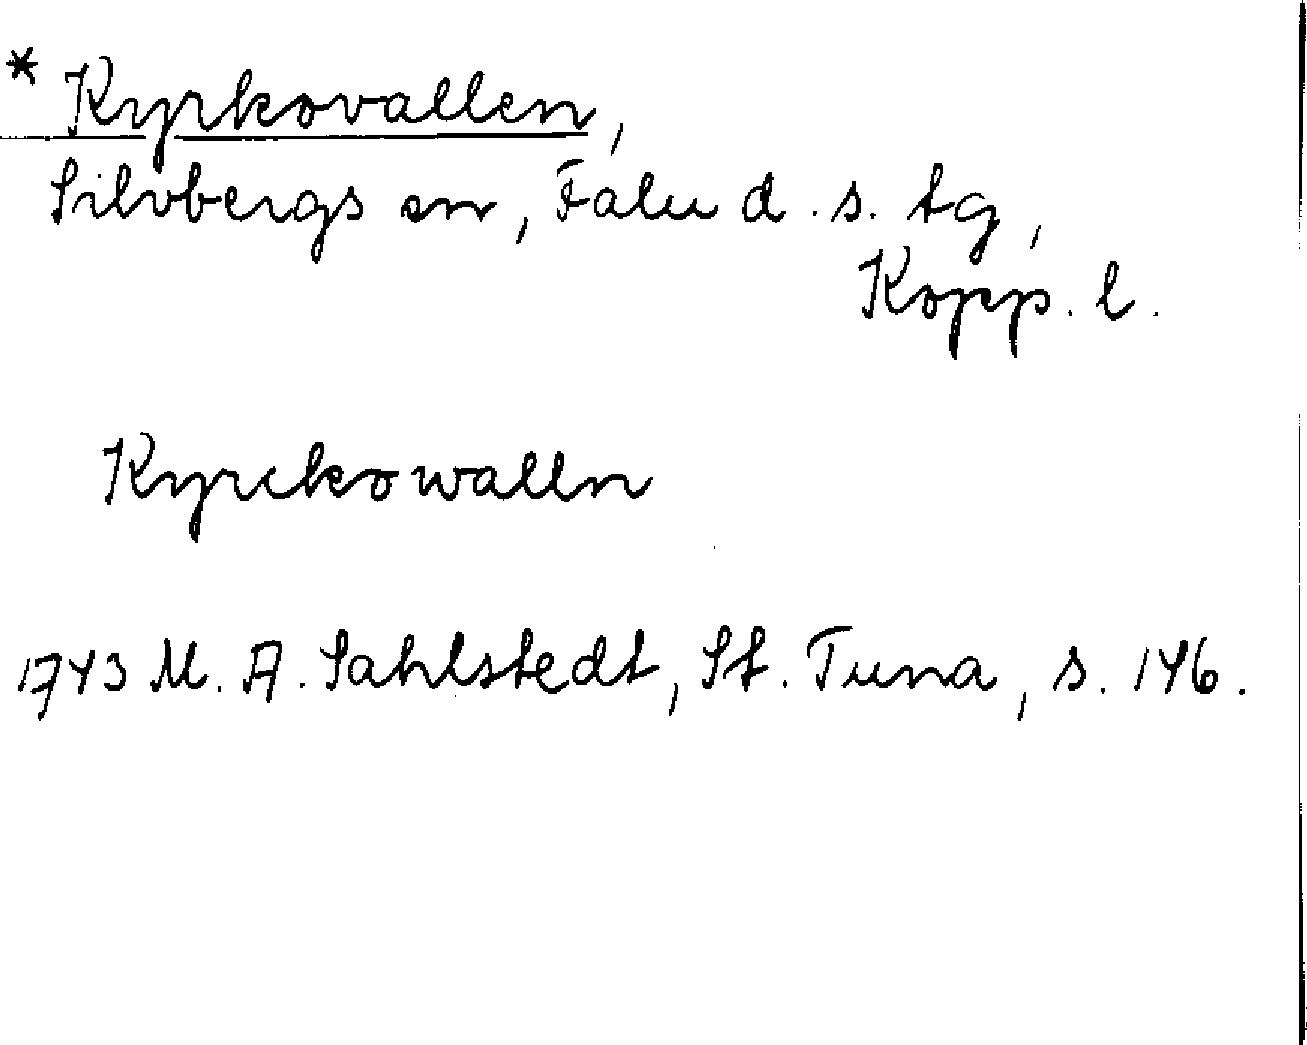 * Kyrkovallen,
Silvbergs sn, Falu d. s. tg,
Kopp. l.
Kyrckowalln
1743 M. A. Sahlstedt, St. Tuna, s. 146.